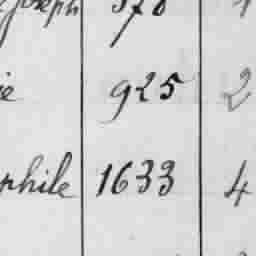 Joseph
ie 925 2
phile 1633 4